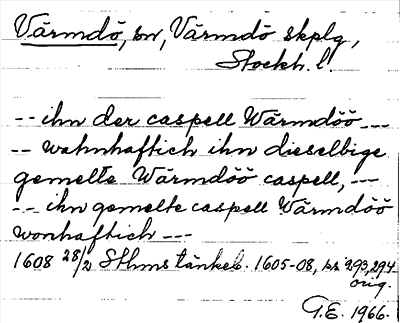 Värmdö, sn, Värmdö skplg,
Stockh. l.
-- ihn der caspell Wärmdöö ---
-- wahnhaftich ihn dieselbige
gemelte Wärmdöö caspell, ---
-- ihn gemelte caspell Wärmdöö
wonhaftich ---
1608 28/2 Sthms tänkeb. 1605-08, s. 293, 294
orig.
G.E. 1966.